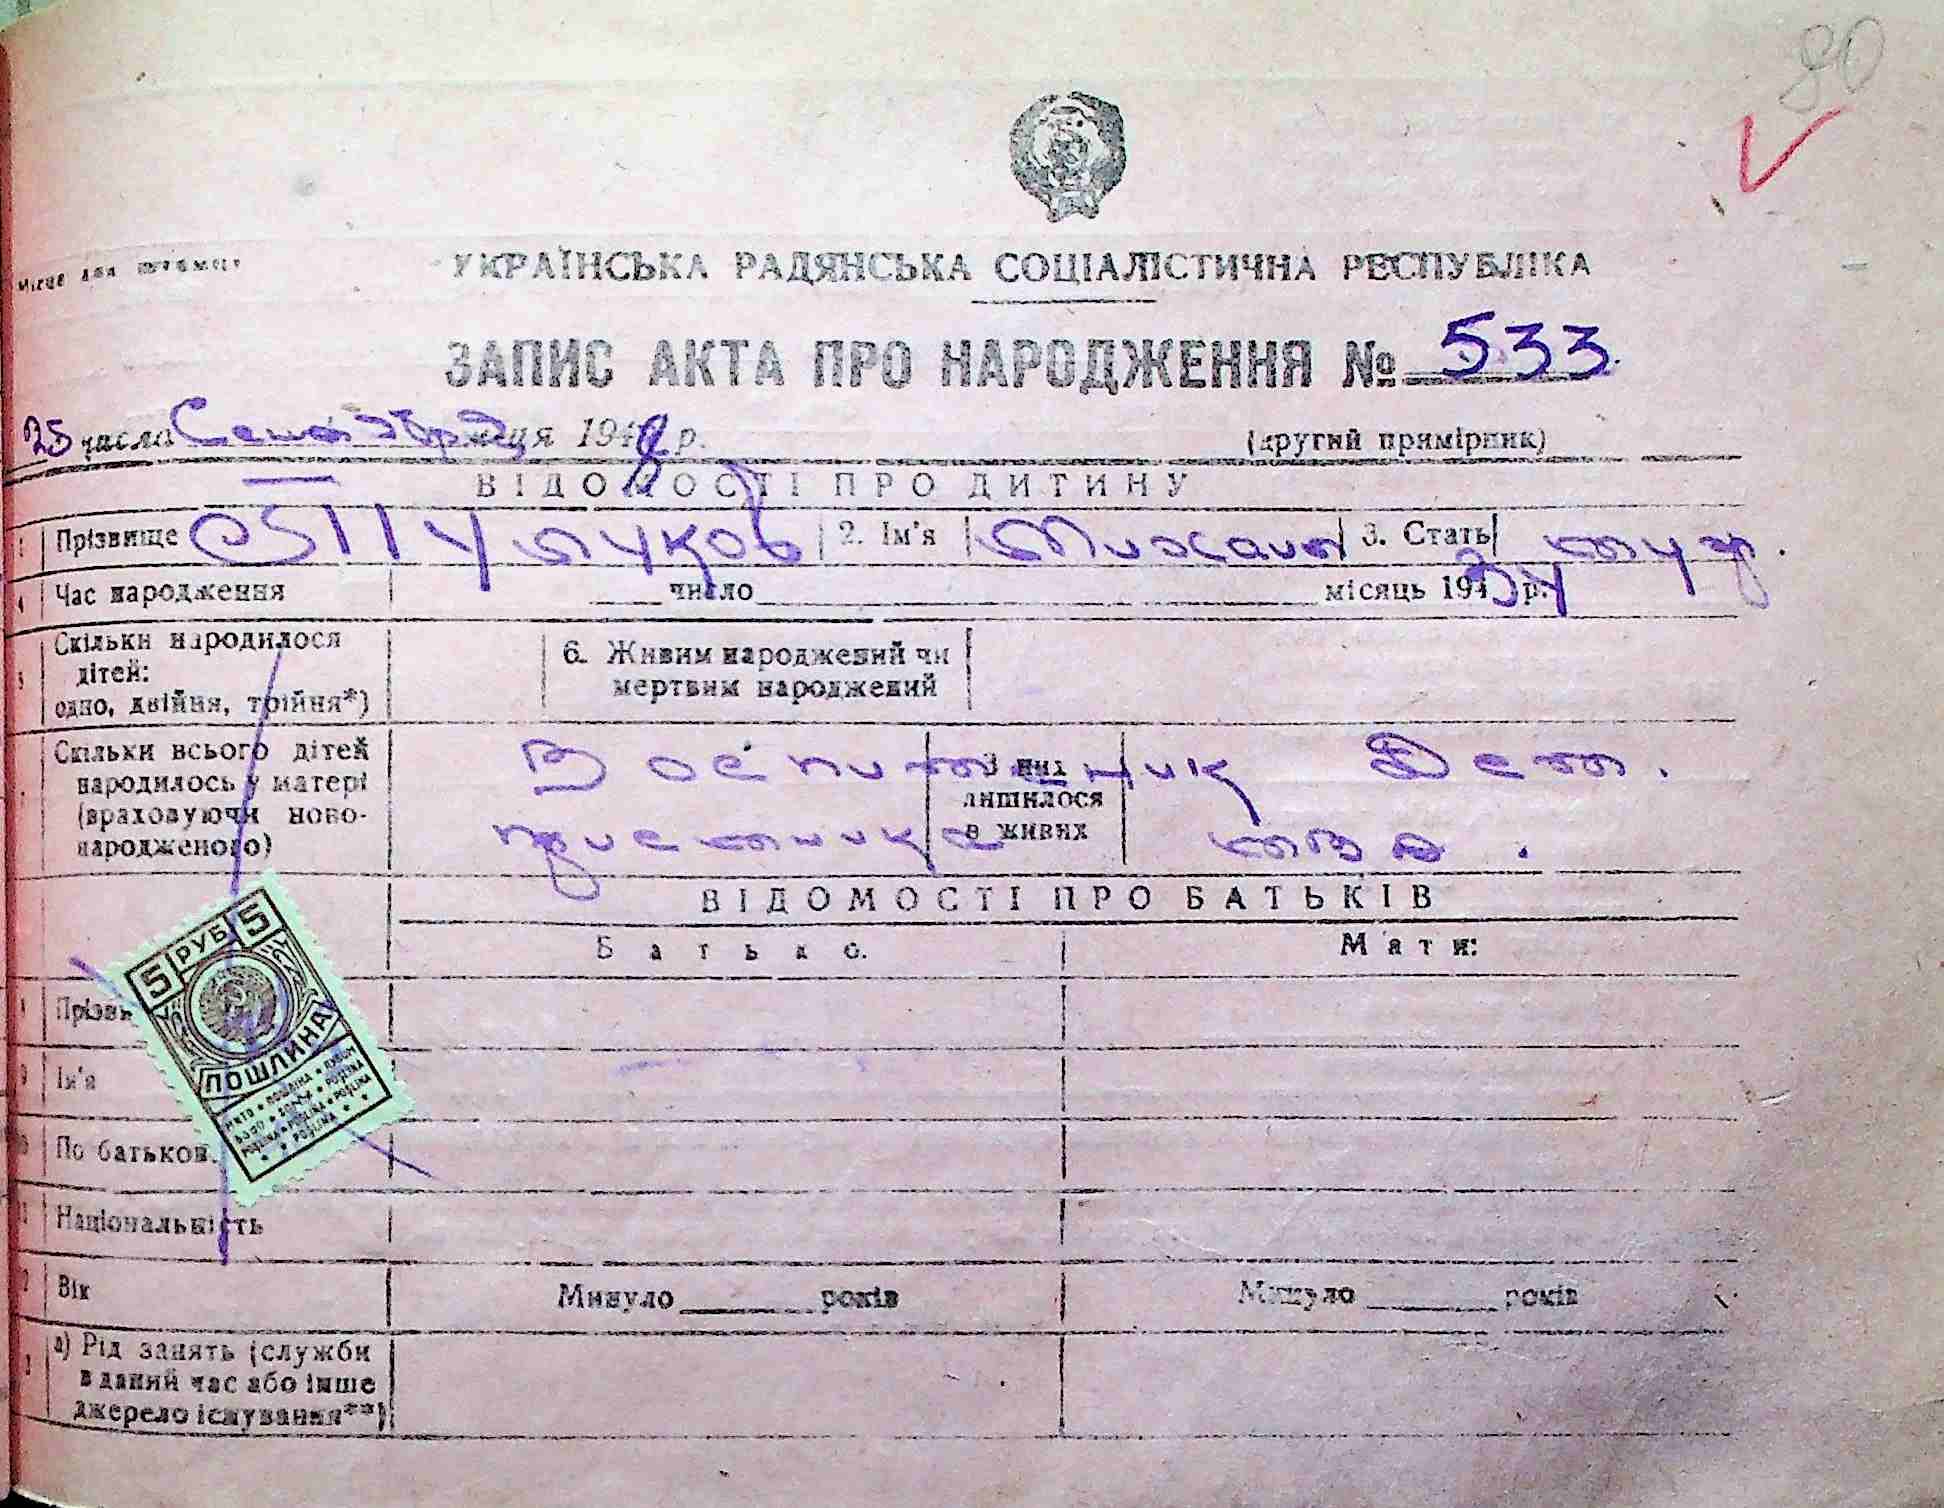 80
Місце для штампу
УКРАЇНСЬКА РАДЯНСЬКА СОЦІАЛІСТИЧНА РЕСПУБЛІКА
ЗАПИС АКТА ПРО НАРОДЖЕННЯ № 533.
25 числа місяця 194 р. (другий примірник)
ВІДОМОСТІ ПРО ДИТИНУ
1 Прізвище 2. Ім'я Михаил 3. Стать муж.
4 Час народження число місяць 1934 р.
5 Скільки народилося дітей: одно, двійня, трійня*) 6. Живим народжений чи мертвим народжений
Скільки всього дітей народилось у матері (враховуючи новонародженого) З них лишилося в живих
Воспитаник Дет.
приемника
ВІДОМОСТІ ПРО БАТЬКІВ
Батько. Мати:
Прізви
Ім'я
По батьков.
Національність
Вік Минуло ______ років Минуло ______ років
а) Рід занять (служби в даний час або інше джерело існування**)
5 РУБ 5
ПОШЛИНА